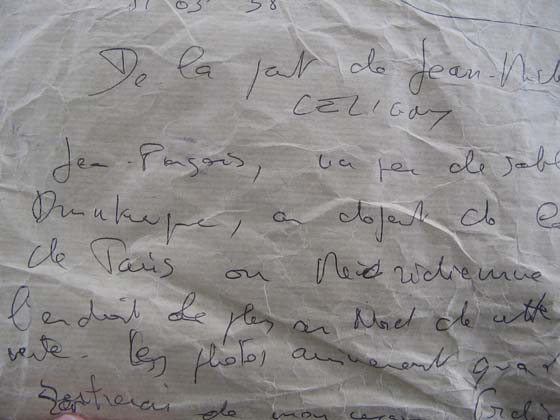 De la part de Jean-Mich
CELIGNY
Jean-François, un peu de sable
Dunkerque, au départ de la
de Paris ou Méridienne
l'endroit le plus au Nord de cette
verte. Les photos arriveront quan
rentrerai de mon